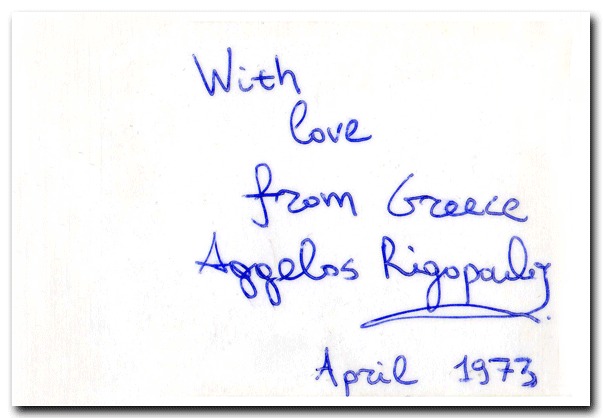 With
love
from Greece
Aggelos Rigopouloy
April 1973